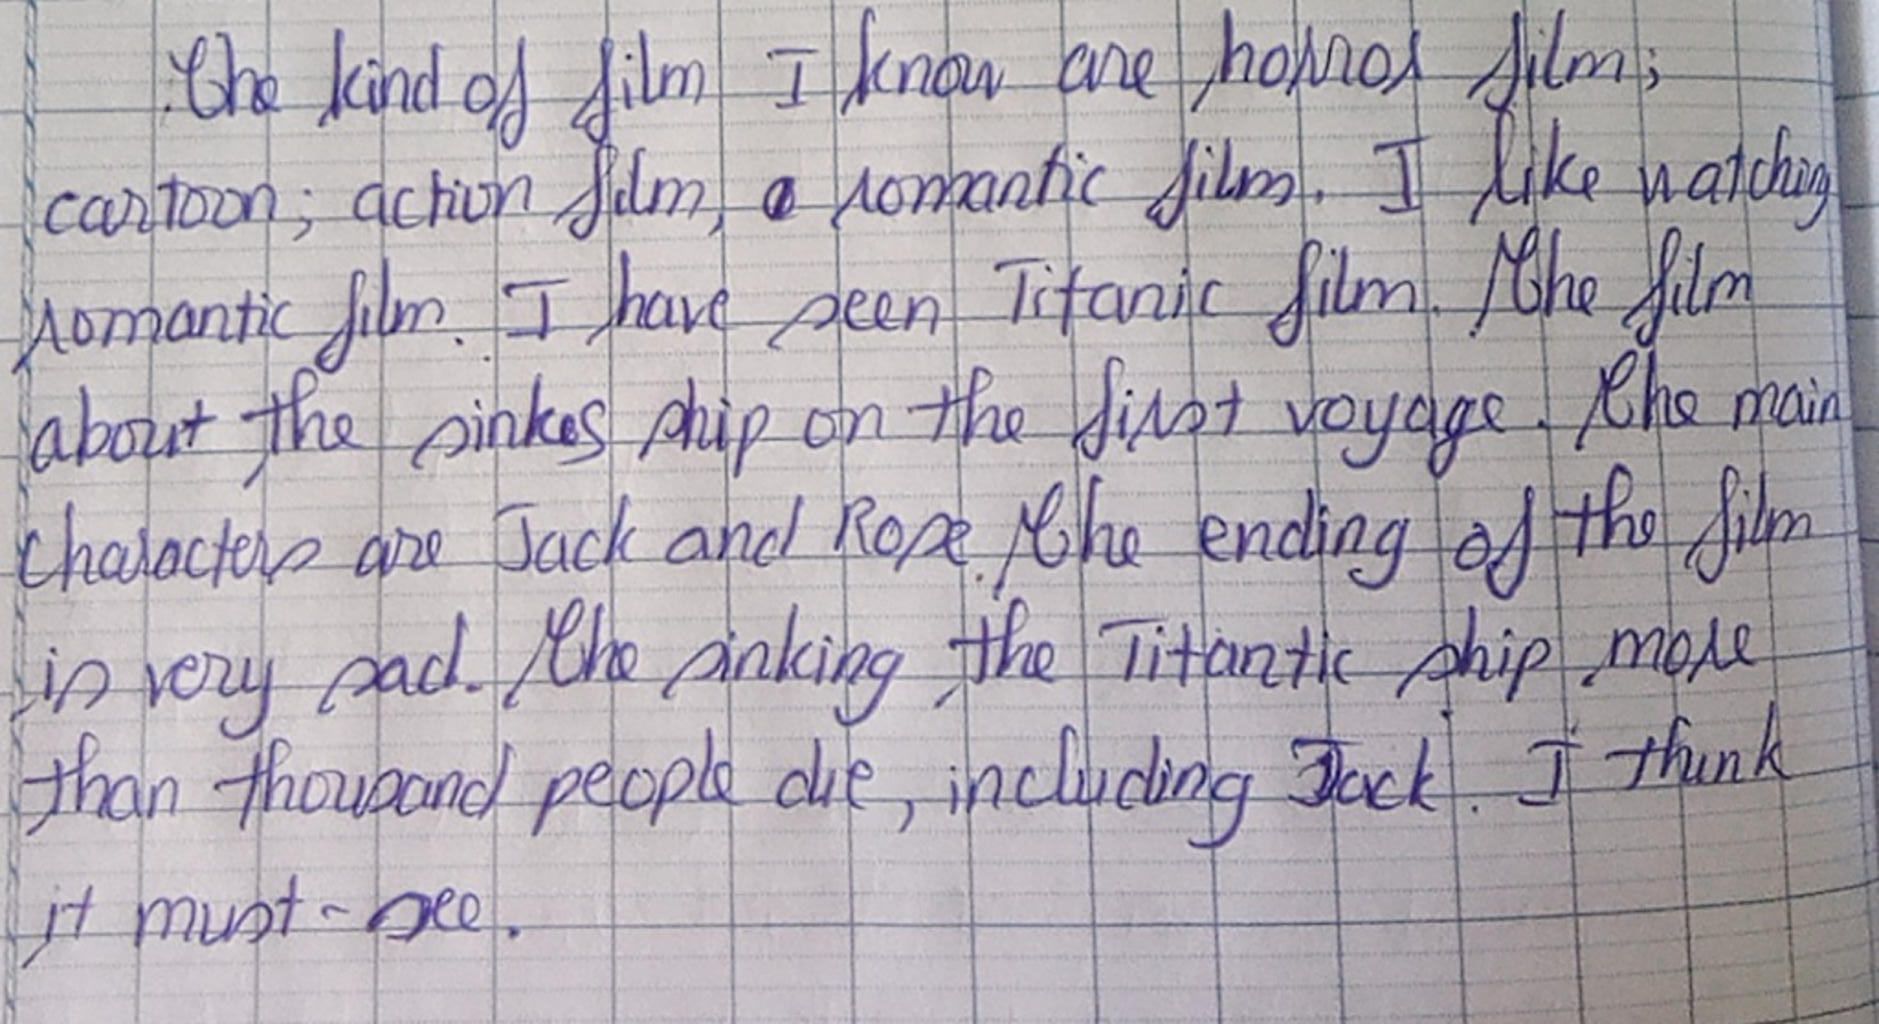 The kind of film I know are horror film;
cartoon; action film, a romantic film. I like watching
romantic film. I have seen Titanic film. The film
about the sinkes ship on the first voyage. The main
characters are Jack and Rose. The ending of the film
is very sad. The sinking the Titantic ship more
than thousand people die, including Jack. I think
it must-see.